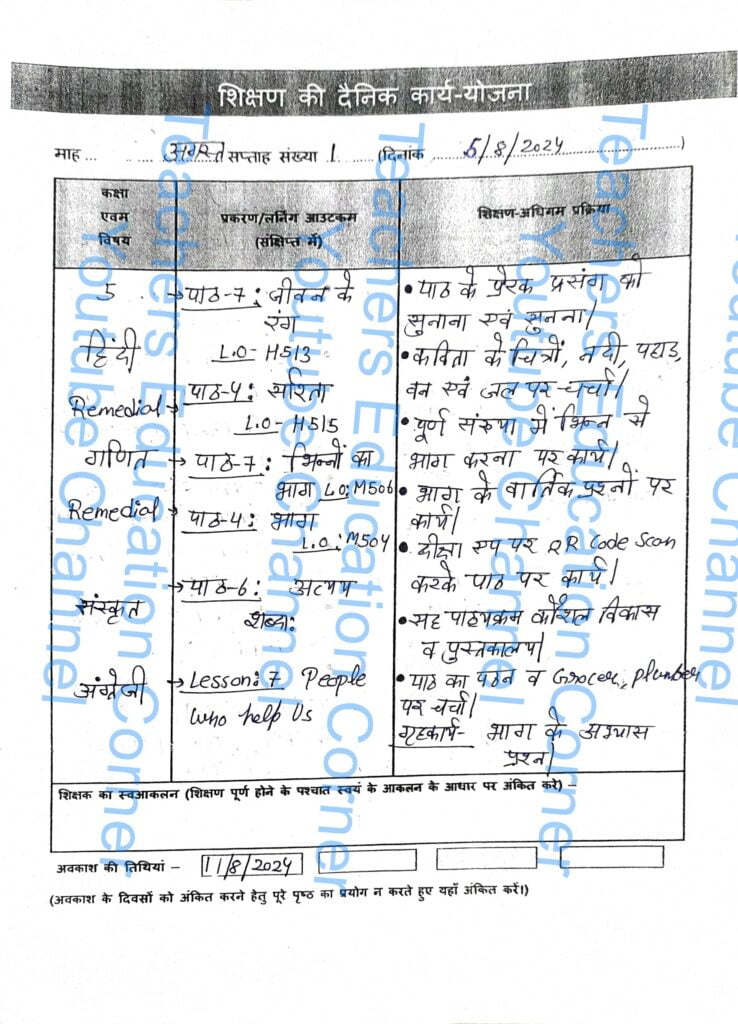 शिक्षण की दैनिक कार्य-योजना
माह ... ... अगस्त सप्ताह संख्या 1. (दिनांक ...5/8/2024...)
कक्षा
एवम
विषय
प्रकरण/लर्निंग आउटकम
(संक्षिप्त में)
शिक्षण-अधिगम प्रक्रिया
5
→ पाठ-7 : जीवन के
रंग
L.O- H513
हिंदी
Remedial →
पाठ-4 : सरिता
L.O- H515
गणित
→ पाठ-7 : भिन्नों का
भाग L.O: M506
Remedial
पाठ-4 : भाग
L.O : M504
संस्कृत
→ पाठ-6 : अव्यय
शब्दाः
अंग्रेजी
→ Lesson: 7 People
who help Us
• पाठ के प्रेरक प्रसंग को
सुनाना एवं सुनना।
• कविता के चित्रों, नदी, पहाड़,
वन एवं जल पर चर्चा।
• पूर्ण संख्या में भिन्न से
भाग करना पर कार्य।
• भाग के वार्तिक प्रश्नों पर
कार्य।
• दीक्षा एप पर QR Code Scan
करके पाठ पर कार्य।
• सह पाठ्यक्रम कौशल विकास
व पुस्तकालय।
• पाठ का पठन व Grocer, plumber
पर चर्चा।
गृहकार्य- भाग के अभ्यास
प्रश्न।
शिक्षक का स्वआकलन (शिक्षण पूर्ण होने के पश्चात स्वयं के आकलन के आधार पर अंकित करें) –
अवकाश की तिथियां – 11/8/2024
(अवकाश के दिवसों को अंकित करने हेतु पूरे पृष्ठ का प्रयोग न करते हुए यहाँ अंकित करें।)
Teachers Education Corner
Youtube Channel
Teachers Education Corner
Youtube Channel
Teachers Education Corner
Youtube Channel
Youtube Channel